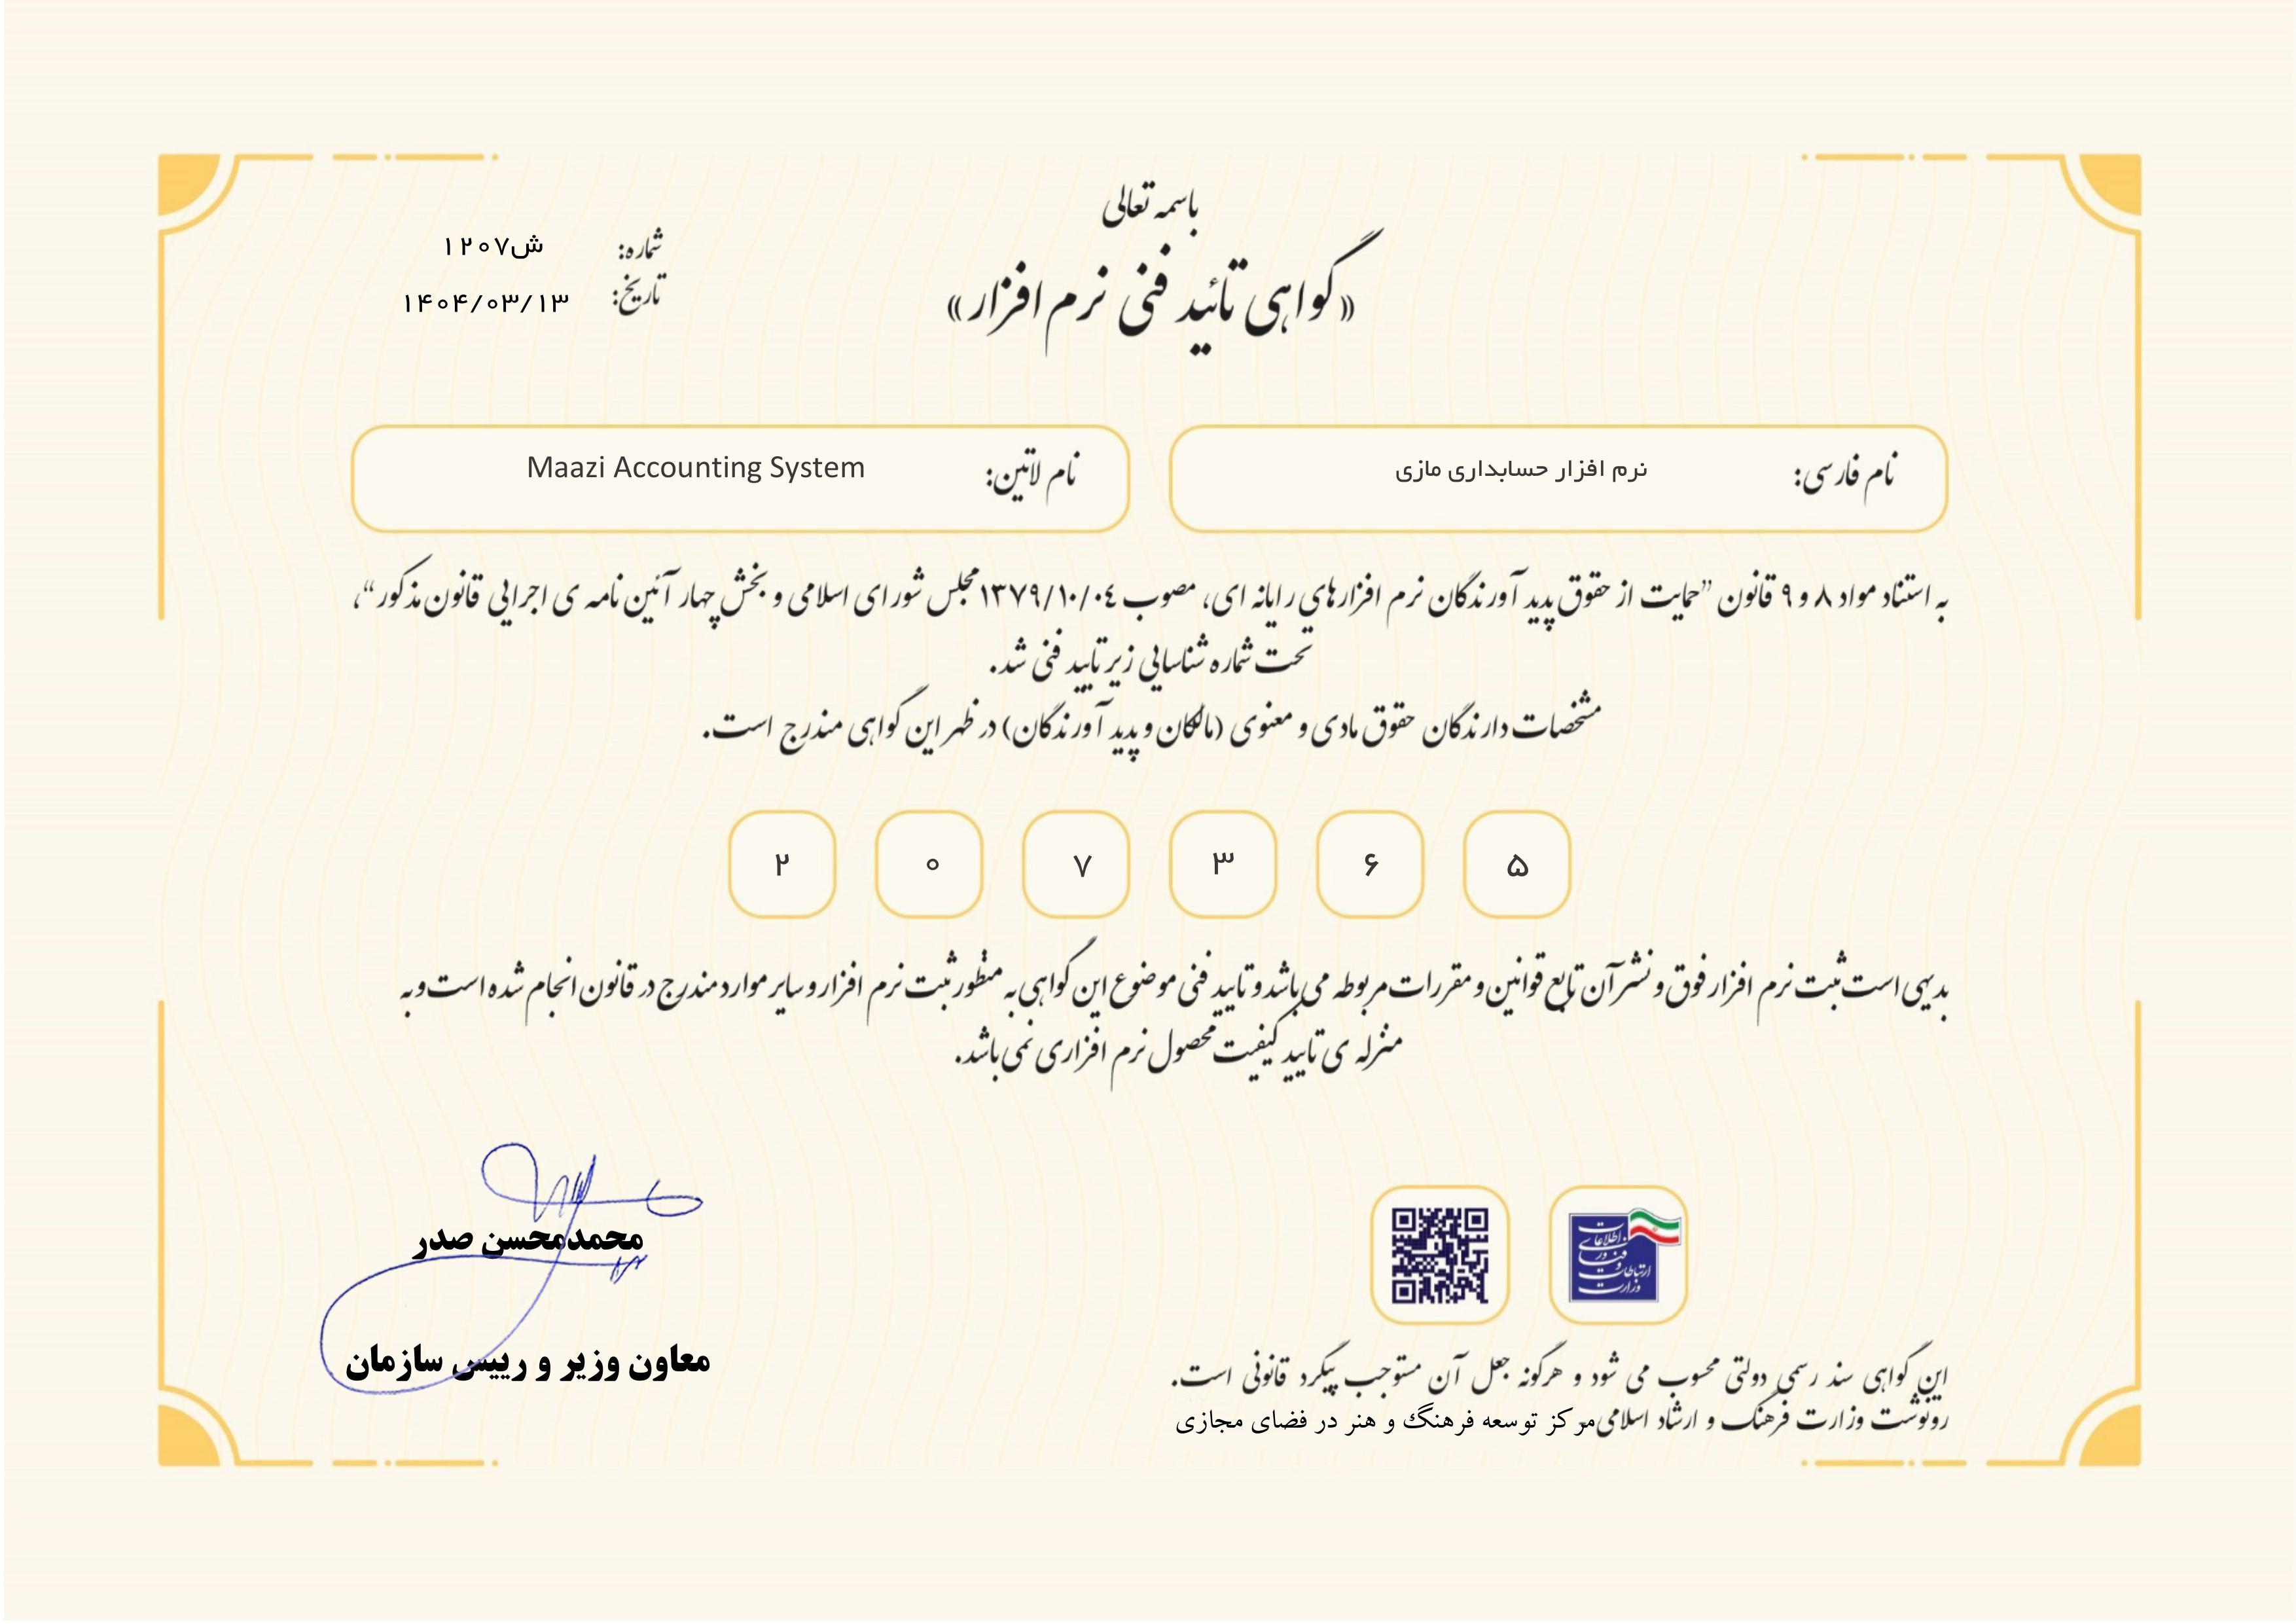 باسمه تعالی
«گواهی تائید فنی نرم افزار»
شماره: ش۱۲۰۷
تاریخ: ۱۴۰۴/۰۳/۱۳
نام فارسی: نرم افزار حسابداری مازی
نام لاتین: Maazi Accounting System
به استناد مواد ۸ و ۹ قانون ”حمایت از حقوق پدید آورندگان نرم افزارهای رایانه ای، مصوب ۱۳۷۹/۱۰/۰٤ مجلس شورای اسلامی و بخش چهار آئین نامه ی اجرایی قانون مذکور“،
تحت شماره شناسایی زیر تایید فنی شد.
مشخصات دارندگان حقوق مادی و معنوی (مالکان و پدید آورندگان) در ظهر این گواهی مندرج است.
۲ ۰ ۷ ۳ ۶ ۵
بدیهی است ثبت نرم افزار فوق و نشر آن تابع قوانین و مقررات مربوطه می باشد و تایید فنی موضوع این گواهی به منظور ثبت نرم افزار و سایر موارد مندرج در قانون انجام شده است و به
منزله ی تایید کیفیت محصول نرم افزاری نمی باشد.
وزارت ارتباطات و فن‌آوری اطلاعات
محمدمحسن صدر
معاون وزیر و رییس سازمان
این گواهی سند رسمی دولتی محسوب می شود و هرگونه جعل آن مستوجب پیگرد قانونی است.
رونوشت وزارت فرهنگ و ارشاد اسلامی مرکز توسعه فرهنگ و هنر در فضای مجازی